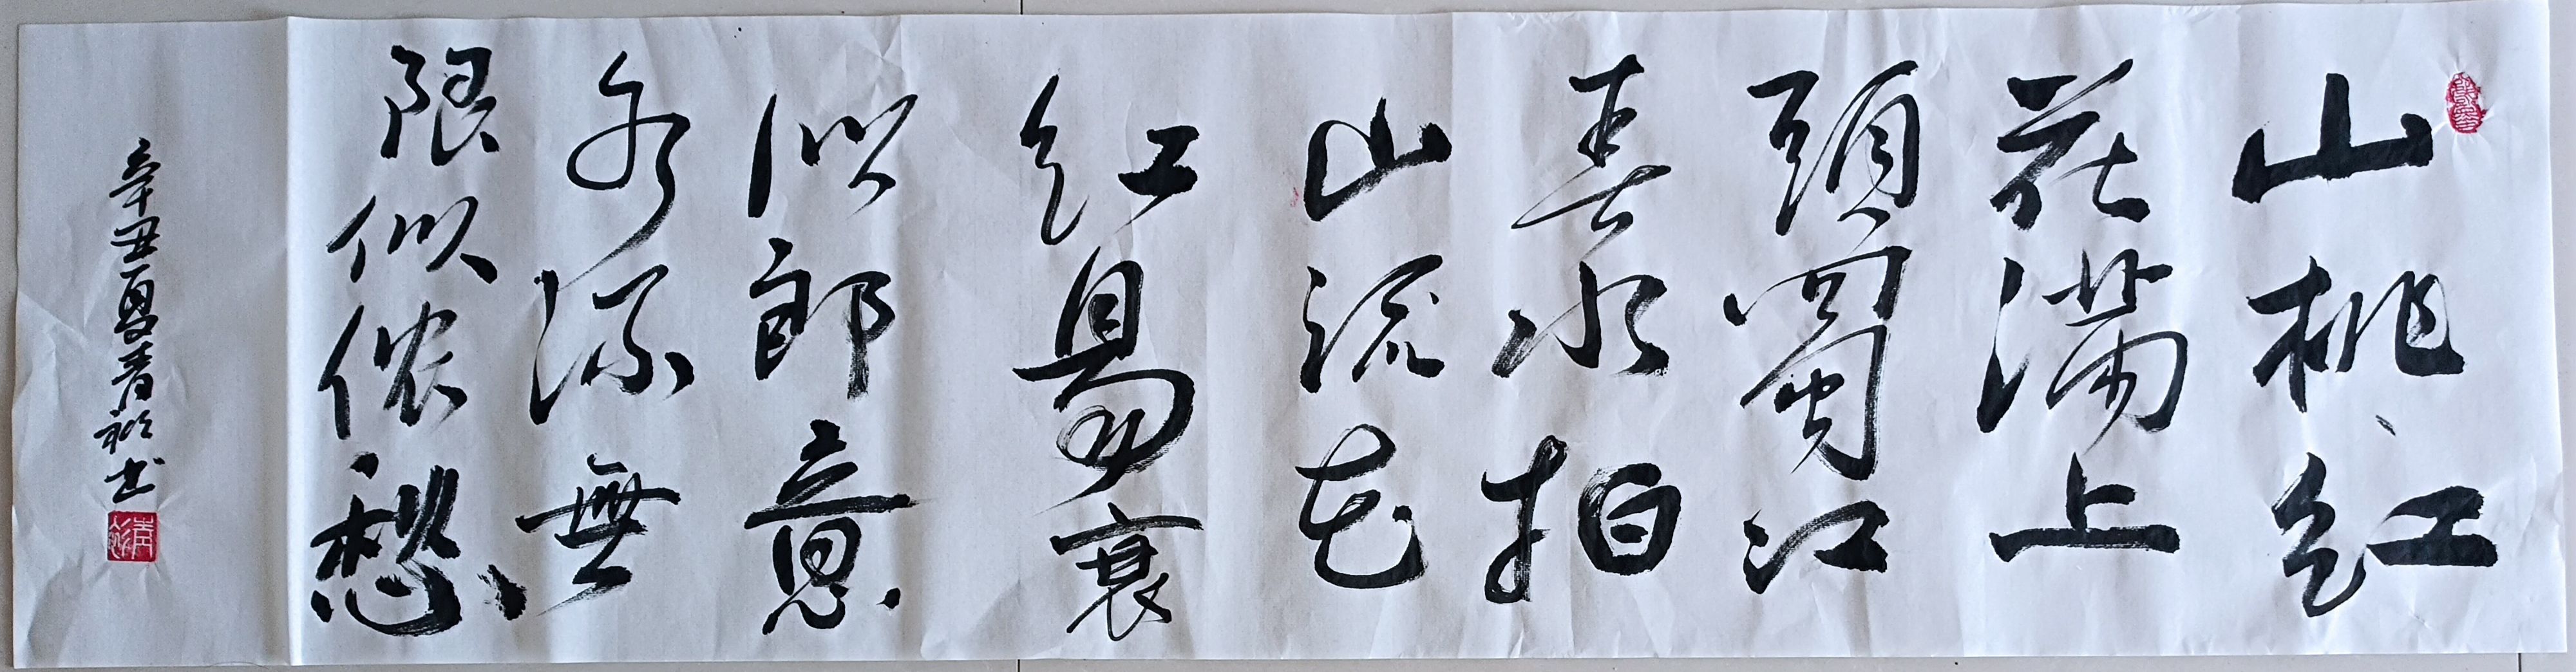 山桃红
花满上
頭蜀江
春水拍
山流花
红易衰
似郎意
水流無
限似侬愁
辛丑夏青书